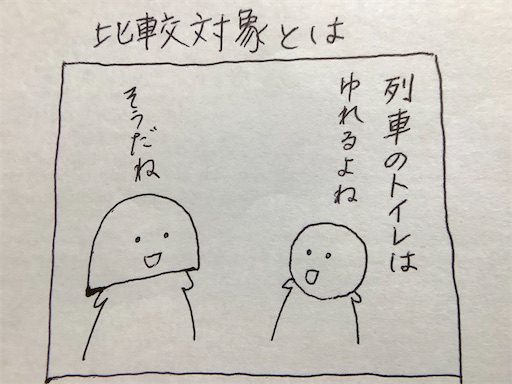 比較対象とは
列車のトイレは
ゆれるよね
そうだね